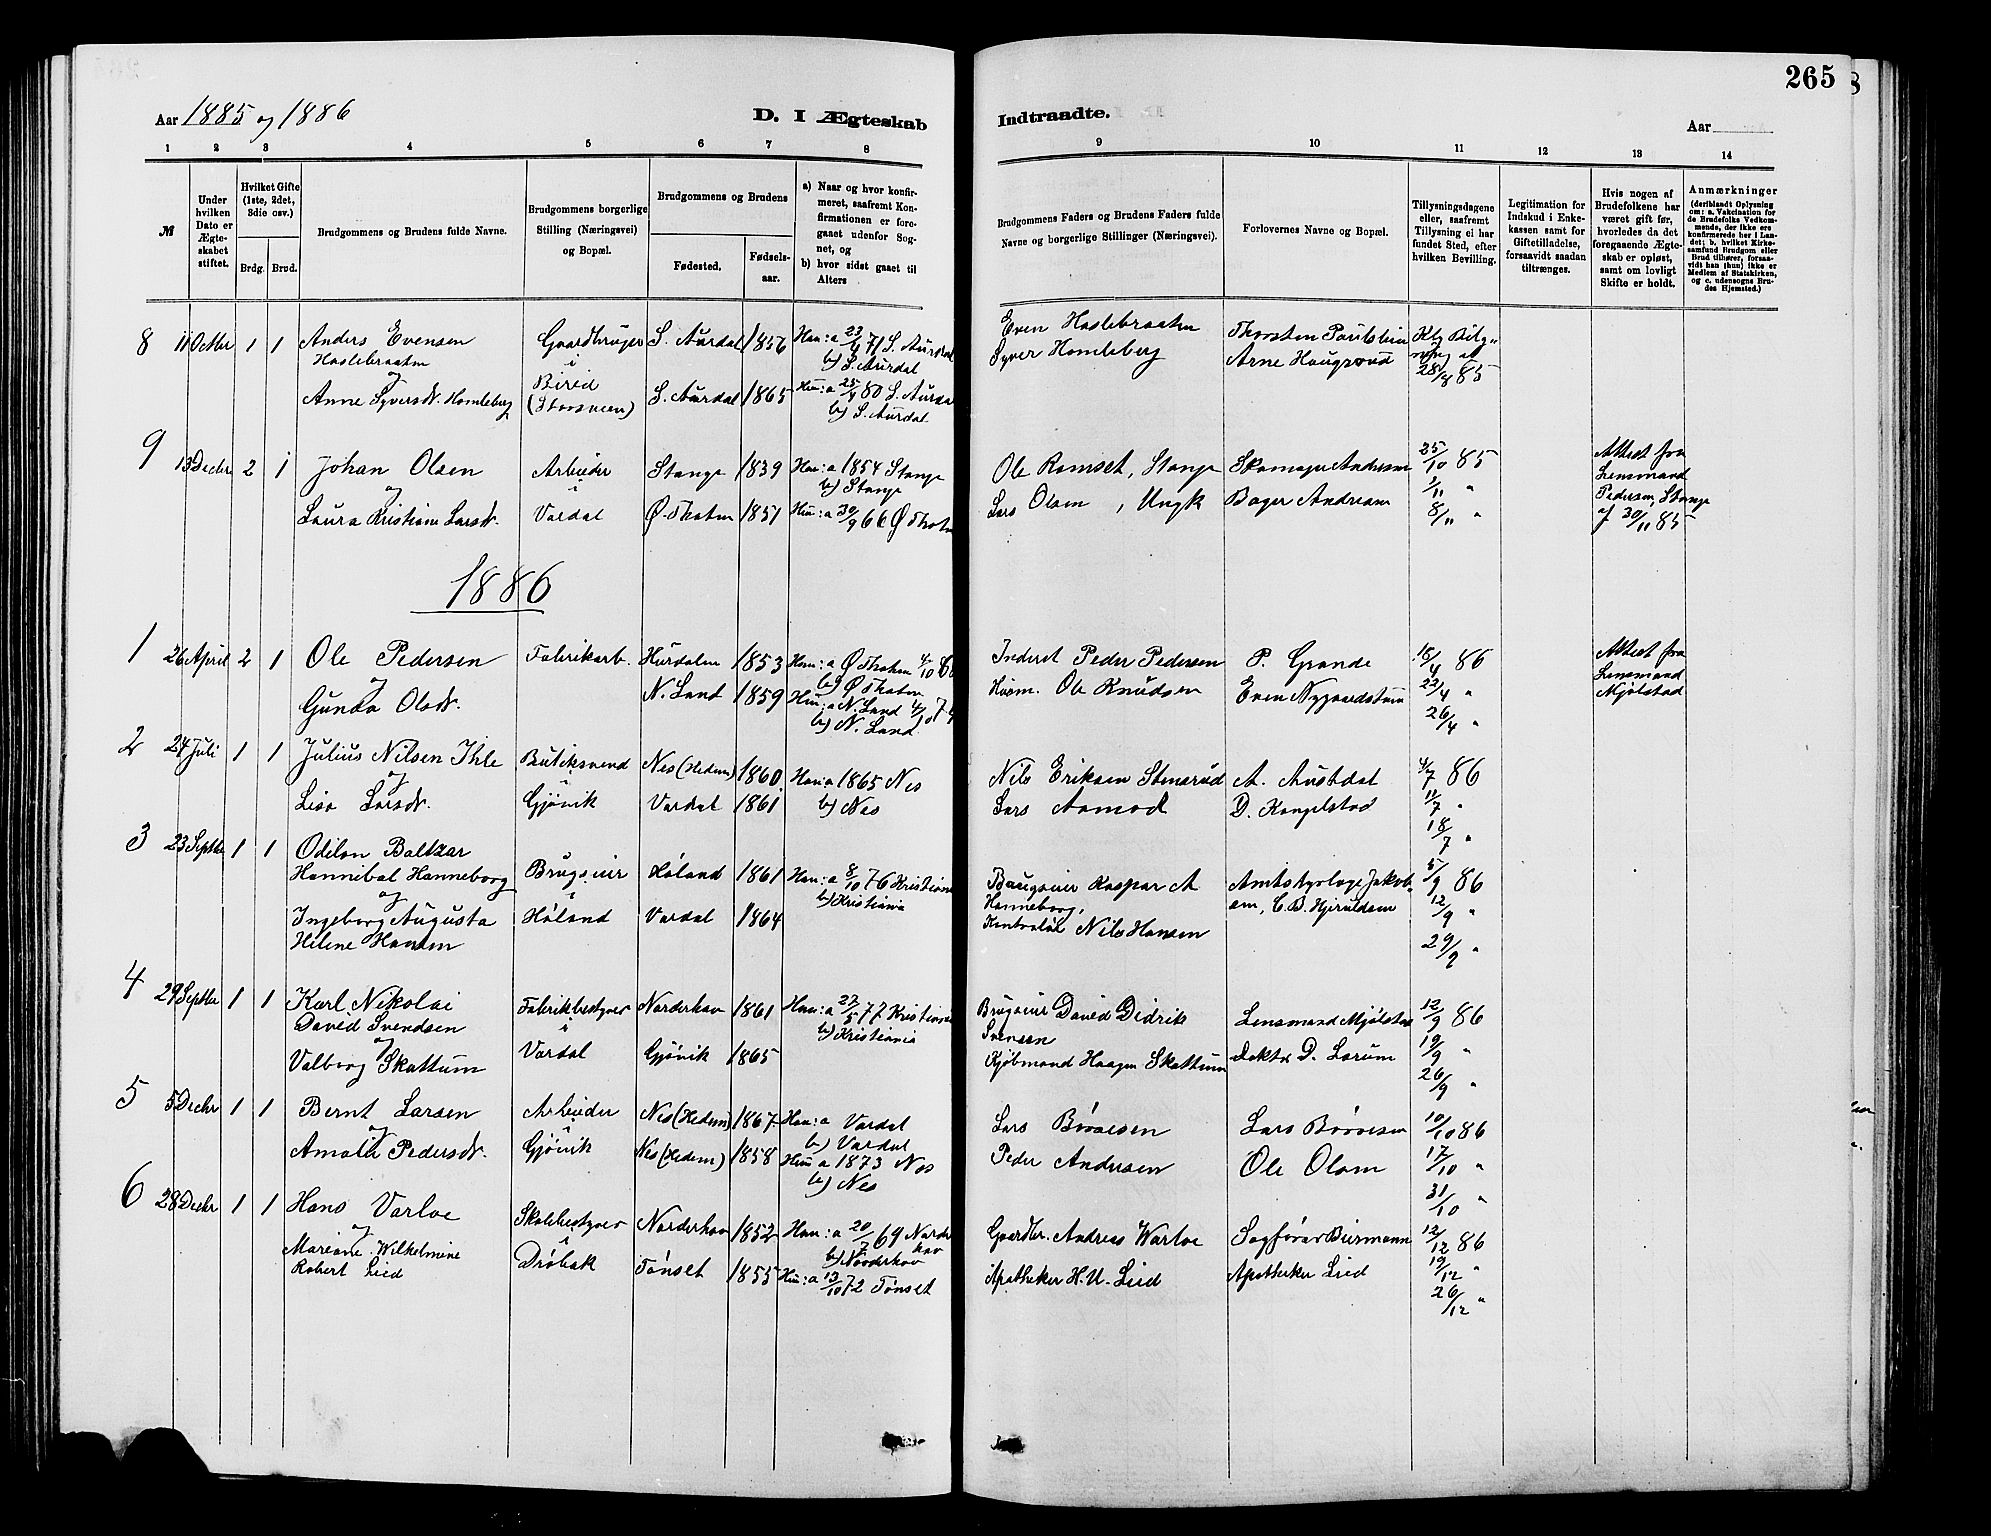 265
Aar 1885 og 1886
D. I Ægteskab
Indtraadte.
Aar
1 2 3 4 5 6 7 8 9 10 11 12 13 14
№
Under hvilken Dato er Ægteskabet stiftet.
Hvilket Gifte (1ste, 2det, 3die osv.)
Brdg. Brud.
Brudgommens og Brudens fulde Navne.
Brudgommens borgerlige Stilling (Næringsvei) og Bopæl.
Brudgommens og Brudens
Fødested.
Fødselsaar.
a) Naar og hvor konfirmeret, saafremt Konfirmationen er foregaaet udenfor Sognet, og
b) hvor sidst gaaet til Alters
Brudgommens Faders og Brudens Faders fulde Navne og borgerlige Stillinger (Næringsvei).
Forlovernes Navne og Bopæl.
Tillysningsdagene eller, saafremt Tillysning ei har fundet Sted, efter hvilken Bevilling.
Legitimation for Indskud i Enkekassen samt for Giftetilladelse, forsaavidt saadan tiltrænges.
Hvis nogen af Brudefolkene har været gift før, hvorledes da det foregaaende Ægteskab er opløst, samt om lovligt Skifte er holdt.
Anmærkninger (deriblandt Oplysning om: a. Vakcination for de Brudefolks Vedkommende, der ikke ere konfirmerede her i Landet; b. hvilket Kirkesamfund Brudgom eller Brud tilhører, forsaavidt han (hun) ikke er Medlem af Statskirken, og c. udensogns Brudes Hjemsted.)
8 11 Octbr 1 1 Anders Evensen Gaardbruger S. Aurdal 1856 Han: a 23/4 71 S. Aurdal Even Haslebraaten Thorsten Paulslien Klg Bilg"
Haslebraaten i b) S. Aurdal Syver Homleberg Arne Haugsrud
og Birid 28/8 85
Anne Syversdtr. Homleberg S. Aurdal 1865 Hun: a 25/4 80 S. Aurdal
b) S. Aurdal
9 13 Decbr 2 1 Johan Olsen Arbeider Stange 1839 Han: a 1854 Stange Ole Ramset, Stange Skomager Andersen 25/10 85 Attest fra
og i b) Stange 1/11 " Lensmand
Laura Kristiane Larsdtr. Vardal Ø. Thoten 1851 Hun: a 30/9 66 Ø Thoten Lars Olsen, Ungk Bager Andersen 8/11 " Pedersen, Stange
af 30/11 85
1886
1 26 April 2 1 Ole Pedersen Fabrikarb. Hurdalen 1853 Han: a Ø Thoten 4/10 Inderst Peder Pedersen P. Grande 18/4 86 Attest fra
og b) Ø Thoten 22/4 " Lensmand
Gunda Olsdtr. N. Land 1859 Hun: a N. Land Husm. Ole Knudsen Even Nygaardstuen 26/4 " Mjølstad
b) N. Land
2 24 Juli 1 1 Julius Nilsen Ihle Butiksvend Nes (Hedem) 1860 Han: a 1865 Nes Nils Eriksen Stensrud A. Austdal 4/7 86
og b) Nes 11/7 "
Lisa Larsdtr. Gjøvik Vardal 1861 Lars Aamod D. Kangelstad 18/7 "
3 23 Septbr 1 1 Odilon Baltzar
Hannibal Hanneborg Brugseier Høland 1861 Han: a 8/10 76 Kristiania Brugseier Kaspar A Amtsdyrlæge Jakob- 5/9 86
og i b) Kristiania Hanneborg, sen, C. B. Hjeruldsen 12/9 "
Ingeborg Augusta Høland Vardal 1864 Kontrolør Nils Hansen 29/9 "
Helene Hansen
4 29 Septbr 1 1 Karl Nikolai Fabrikbestyrer Norderhov 1861 Han: a 27/5 77 Kristiania Brugseier David Didrik Lensmand Mjølstad 12/9 86
David Svendsen i b) Kristiania Svensen 19/9 "
og
Valborg Skattum Vardal Gjøvik 1865 Kjøbmand Haagen Skattum Doktor D. Larum 26/9 "
5 5 Decbr 1 1 Bernt Larsen Arbeider Nes (Hedem) 1867 Han: a Vardal Lars Børresen Lars Børresen 10/10 86
og b) Vardal 17/10 "
Amalie Pedersdtr. Gjøvik Nes (Hedem) 1858 Hun a 1873 Nes Peder Andersen Ole Olsen 31/10 "
b) Nes
6 28 Decbr 1 1 Hans Varloe Skolebestyrer Norderhov 1852 Han: a 20/7 69 Norder Gaardbr. Andreas Warloe Sagfører Biermann 12/12 86
og i hov
b) Norderhov
Mariane Wilhelmine Drøbak Tønset 1855 Hun: a 13/10 72 Tønset Apotheker H. U. Lied Apotheker Lied 19/12 "
Robert Lied 26/12 "